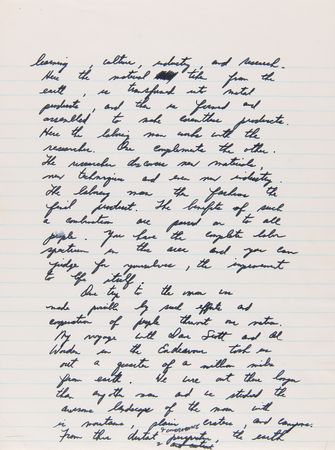 learning, culture, industry, and research.
Here the material taken from the
earth, is transformed into metal
products, and then is formed and
assembled to make countless products.
Here the laboring man works with the
researcher. One compliments the other.
The researcher discovers new materials,
new techniques and even new industry.
The laboring man then fashions the
final product. The benefits of such
a combination are passed on to all
people. You have the complete labor
spectrum in this area and you can
judge for yourselves, the improvement
to life itself.
Our trip to the moon was
made possible by such efforts and
cooperation of people throughout our nation.
My voyage with Dave Scott and Al
Worden in the Endeavour took us
out a quarter of a million miles
from earth. We were out there longer
than any other man and we studied the
awesome landscape of the moon with
its mountains, plains, craters, and canyons.
From this distant perspective, the earth